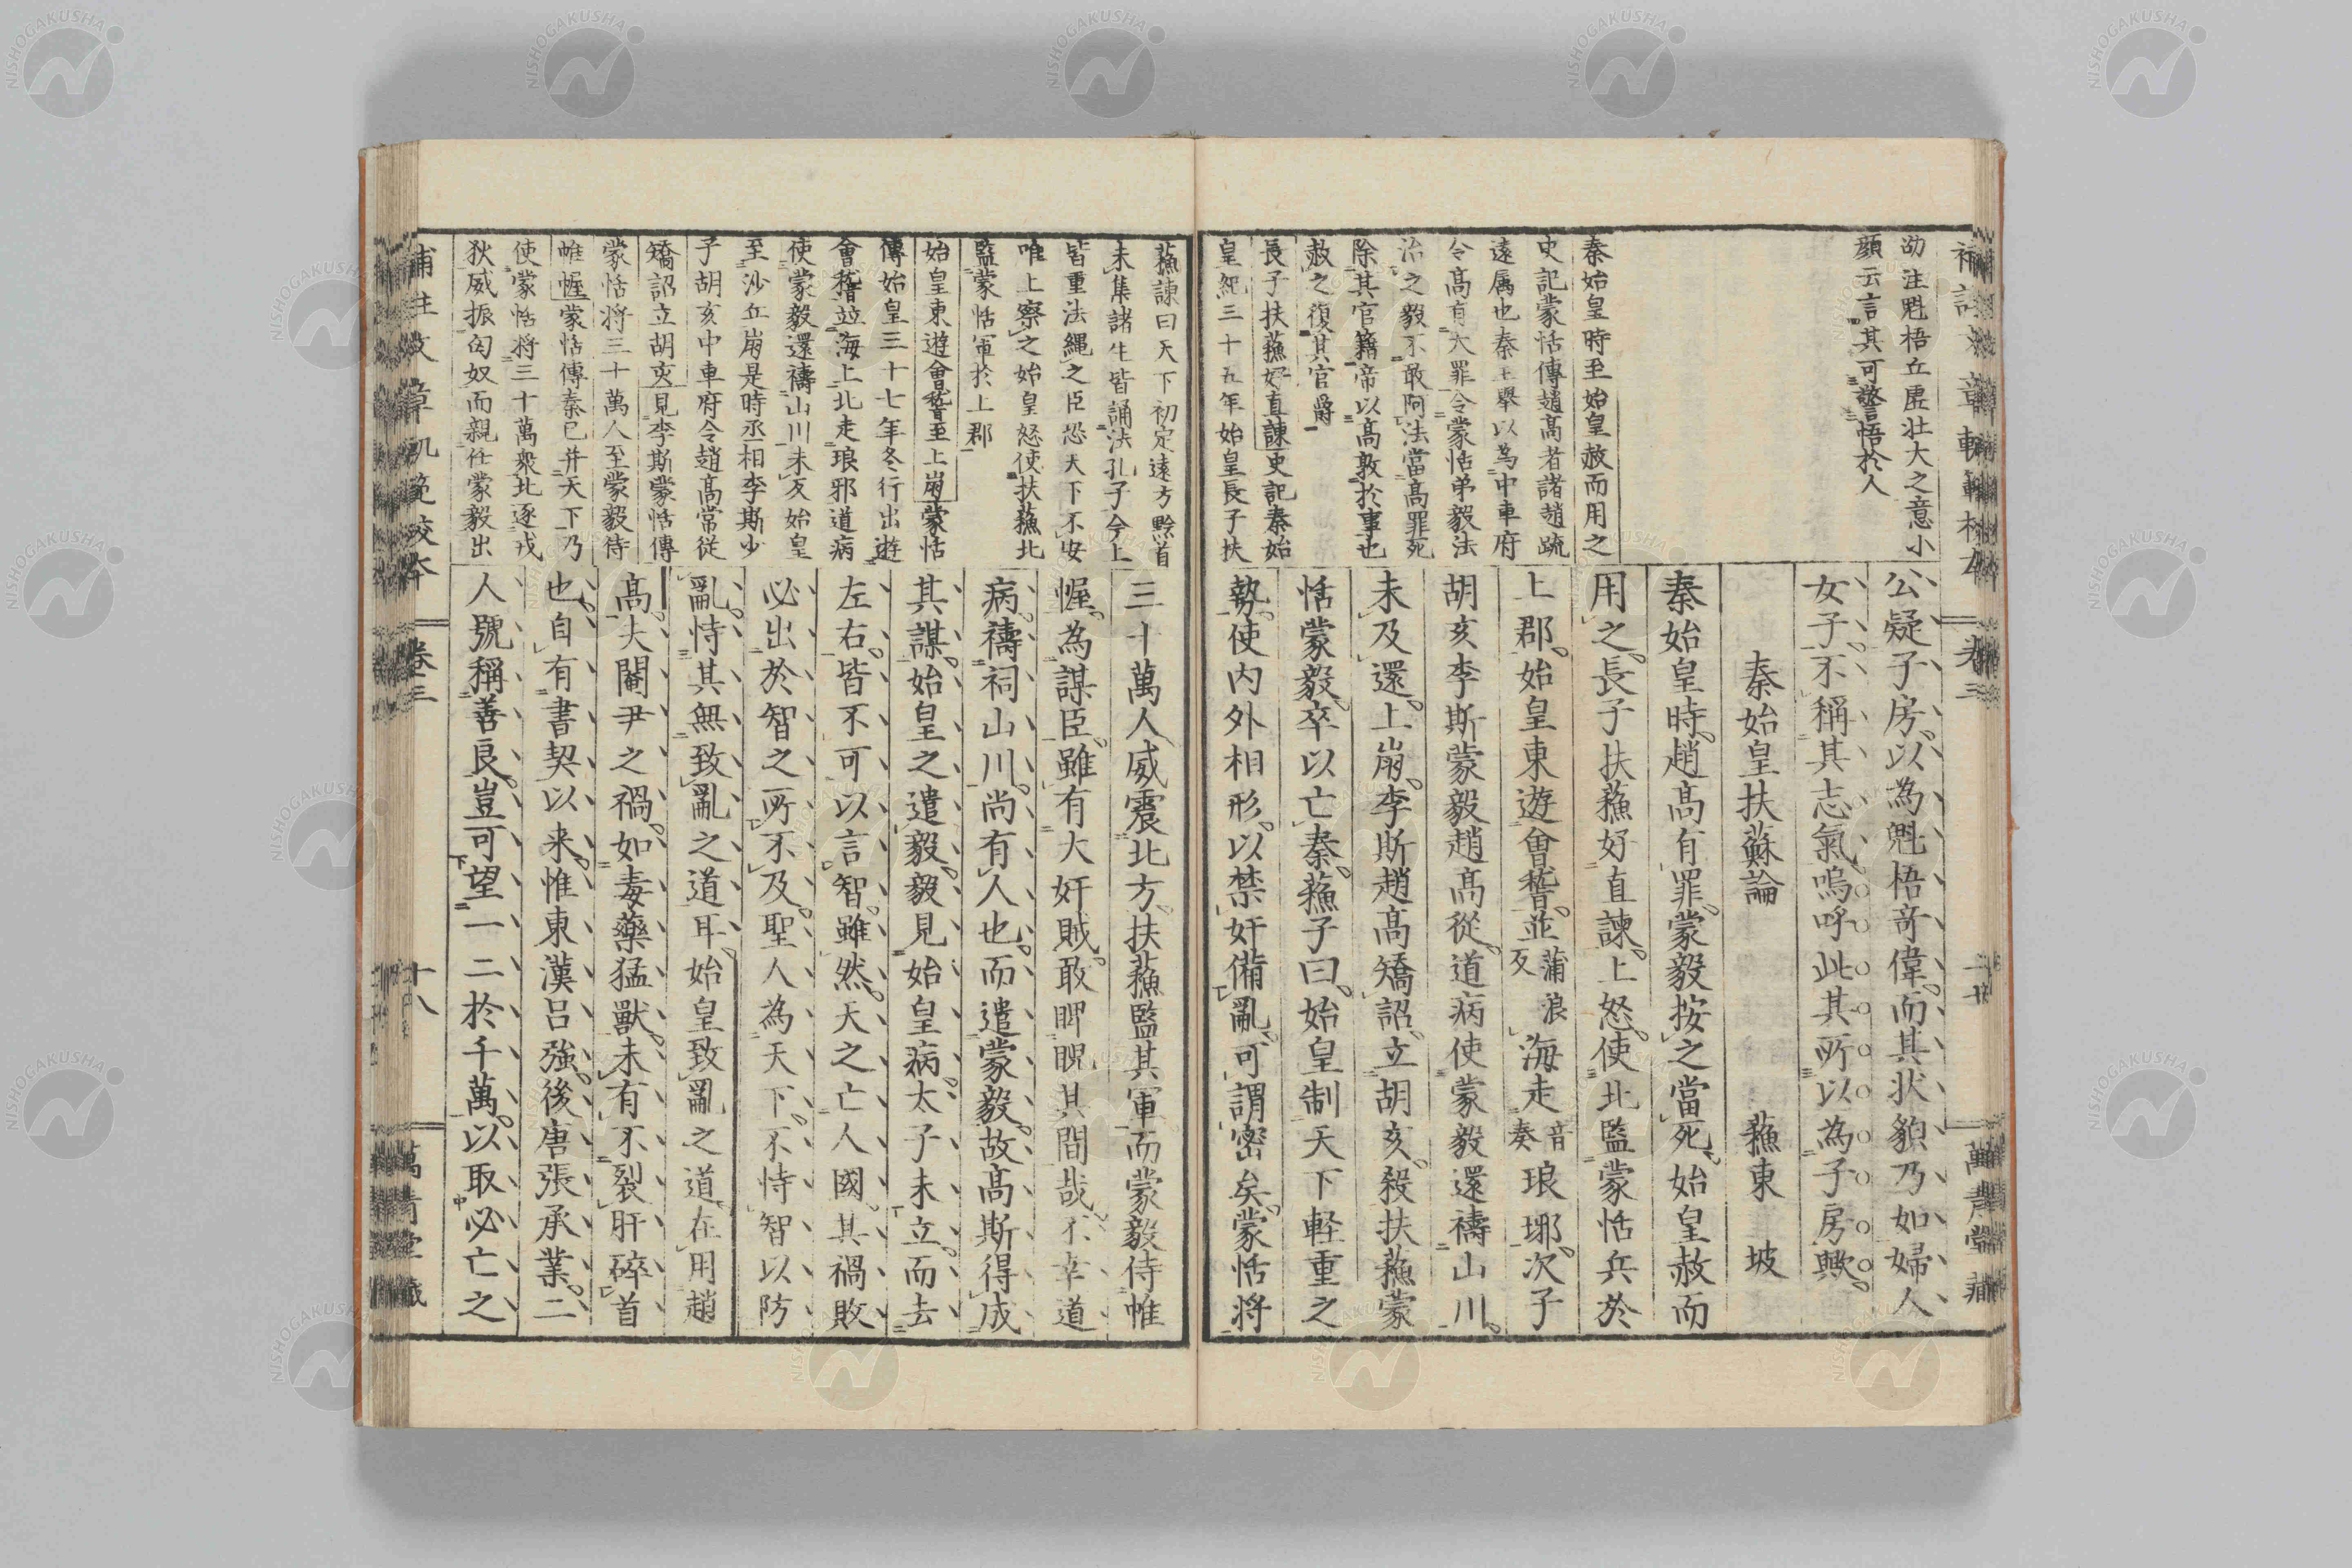 劭注魁梧丘虚壮大之意小
顔云言其可警悟於人
秦始皇時至始皇赦而用之
史記蒙恬傳趙高者諸趙疏
遠属也秦王舉以為中車府
令高有大罪令蒙恬弟毅法
治之毅不敢阿法當高罪死
除其官籍帝以高敦於事也
赦之復其官爵
長子扶蘓好直諫史記秦始
皇紀三十五年始皇長子扶
公疑子房以為魁梧竒偉而其状貌乃如婦人
女子不稱其志氣嗚呼此其所以為子房歟
秦始皇扶蘇論 蘓東坡
秦始皇時趙高有罪蒙毅按之當死始皇赦而
用之長子扶蘓好直諫上怒使北監蒙恬兵於
上郡始皇東遊會稽並蒲浪反海走音奏琅琊次子
胡亥李斯蒙毅趙高從道病使蒙毅還禱山川
未及還上崩李斯趙高矯詔立胡亥殺扶蘓蒙
恬蒙毅卒以亡秦蘓子曰始皇制天下軽重之
勢使内外相形以禁奸備亂可謂密矣蒙恬将
蘓諫曰天下初定遠方黔首
未集諸生皆誦法孔子今上
皆重法縄之臣恐天下不安
唯上察之始皇怒使扶蘓北
監蒙恬軍於上郡
始皇東遊會稽至上崩蒙恬
傳始皇三十七年冬行出遊
會稽竝海上北走琅邪道病
使蒙毅還禱山川未反始皇
至沙丘崩是時丞相李斯少
子胡亥中車府令趙高常従
矯詔立胡亥見李斯蒙恬傳
蒙恬将三十萬人至蒙毅侍
帷幄蒙恬傳秦已并天下乃
使蒙恬将三十萬衆北逐戎
狄威振匈奴而親任蒙毅出
三十萬人威震北方扶蘓監其軍而蒙毅侍帷
幄為謀臣雖有大奸賊敢睥睨其間哉不幸道
病禱祠山川尚有人也而遣蒙毅故高斯得成
其謀始皇之遣毅毅見始皇病太子未立而去
左右皆不可以言智雖然天之亡人國其禍敗
必出於智之所不及聖人為天下不恃智以防
亂恃其無致亂之道耳始皇致亂之道在用趙
高夫閹尹之禍如毒藥猛獸未有不裂肝碎首
也自有書契以来惟東漢呂強後唐張承業二
人號稱善良豈可望一二於千萬以取必亡之
補註文章軌範校本 卷三 十八 萬青堂藏